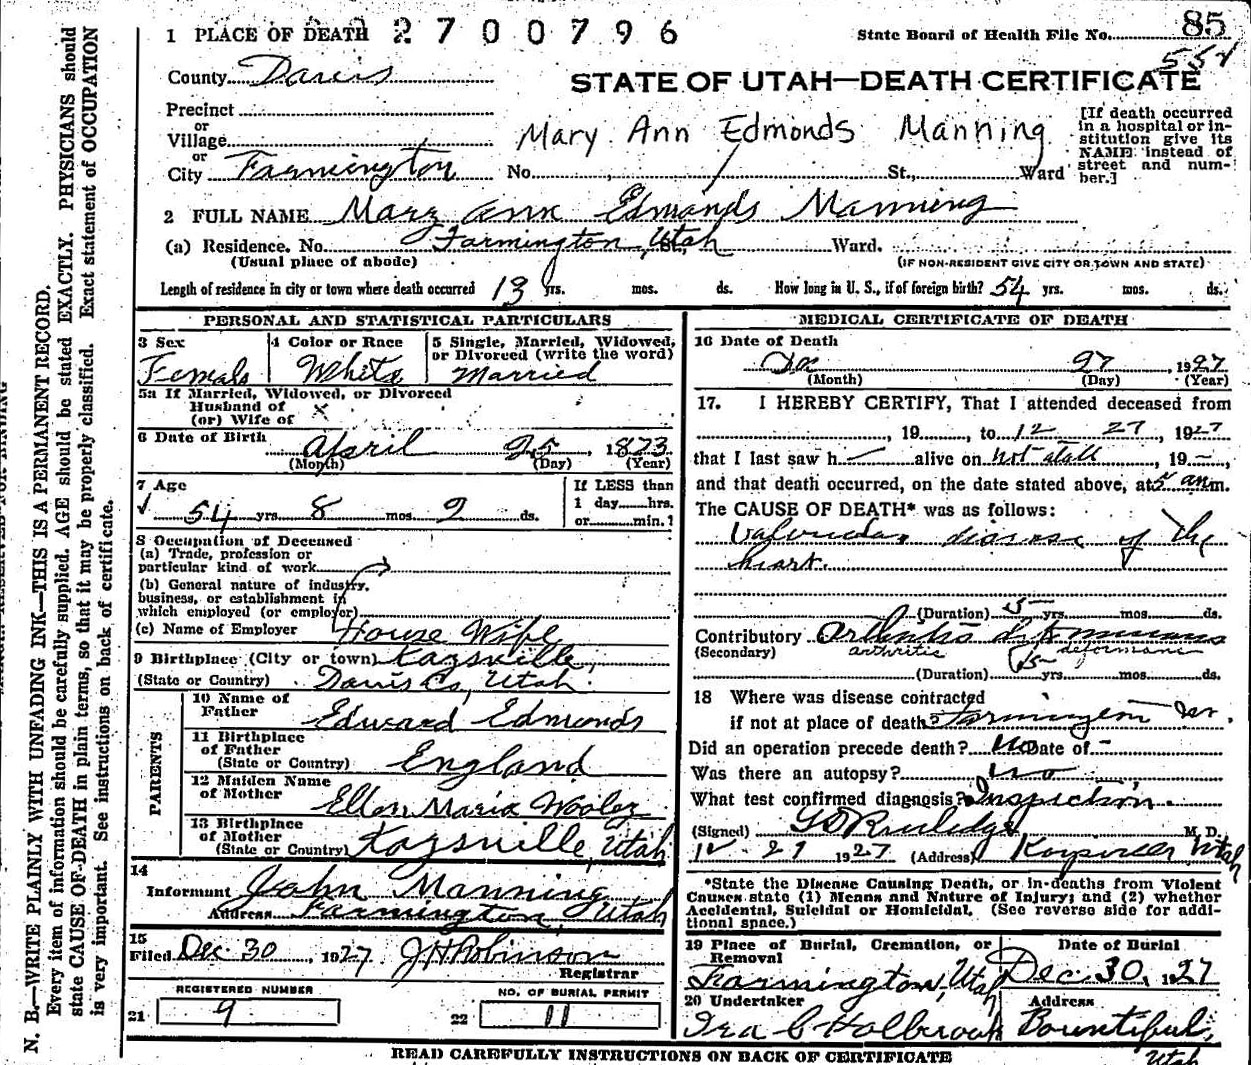 1 PLACE OF DEATH 2700796
State Board of Health File No. 85
County Davis
STATE OF UTAH—DEATH CERTIFICATE
Precinct
or
Village
or
City Farmington No. St., Ward
Mary Ann Edmonds Manning
[If death occurred in a hospital or institution give its NAME instead of street and number.]
2 FULL NAME Mary Ann Edmonds Manning
(a) Residence. No. Farmington, Utah St., Ward.
(Usual place of abode) (IF NON-RESIDENT GIVE CITY OR TOWN AND STATE)
Length of residence in city or town where death occurred 13 yrs. mos. ds. How long in U. S., if of foreign birth? 54 yrs. mos. ds.
PERSONAL AND STATISTICAL PARTICULARS
3 Sex
Female
4 Color or Race
White
5 Single, Married, Widowed,
or Divorced (write the word)
Married
5a If Married, Widowed, or Divorced
Husband of
(or) Wife of x
6 Date of Birth
April 25, 1873
(Month) (Day) (Year)
7 Age
54 yrs. 8 mos. 2 ds.
If LESS than
1 day hrs.
or min.?
8 Occupation of Deceased
(a) Trade, profession or
particular kind of work
(b) General nature of industry,
business, or establishment in
which employed (or employer)
(c) Name of Employer House Wife
9 Birthplace (City or town) Kaysville,
(State or Country) Davis Co, Utah.
PARENTS
10 Name of
Father Edward Edmonds
11 Birthplace
of Father
(State or Country) England
12 Maiden Name
of Mother Ellen Maria Wooley
13 Birthplace
of Mother
(State or Country) Kaysville, Utah
14
Informant John Manning
Address Farmington, Utah
15
Filed Dec 30, 1927 J H Robinson
Registrar
REGISTERED NUMBER
21 9
NO. OF BURIAL PERMIT
22 11
MEDICAL CERTIFICATE OF DEATH
16 Date of Death
27, 1927
(Month) (Day) (Year)
17. I HEREBY CERTIFY, That I attended deceased from
, 19 , to 12 27, 1927
that I last saw h— alive on not at all, 19 –,
and that death occurred, on the date stated above, at 5 am.
The CAUSE OF DEATH* was as follows:
Valvular disease of the
heart.
(Duration) 5 yrs. mos. ds.
Contributory Arthritis deformans
(Secondary) arthritis deformans
(Duration) 15 yrs. mos. ds.
18 Where was disease contracted
if not at place of death? Farmington
Did an operation precede death? No Date of –
Was there an autopsy? no
What test confirmed diagnosis? Inspection.
(Signed) G D Rutledge M. D.
12 - 27, 1927 (Address) Kaysville Utah
*State the Disease Causing Death, or in deaths from Violent
Causes state (1) Means and Nature of Injury; and (2) whether
Accidental, Suicidal or Homicidal. (See reverse side for additional space.)
19 Place of Burial, Cremation, or
Removal
Farmington, Utah
Date of Burial
Dec. 30, 1927
20 Undertaker
Ira C Holbrook
Address
Bountiful,
Utah
READ CAREFULLY INSTRUCTIONS ON BACK OF CERTIFICATE
N. B.—WRITE PLAINLY WITH UNFADING INK—THIS IS A PERMANENT RECORD.
Every item of information should be carefully supplied. AGE should be stated EXACTLY. PHYSICIANS should
state CAUSE OF DEATH in plain terms, so that it may be properly classified. Exact statement of OCCUPATION
is very important. See instructions on back of certificate.